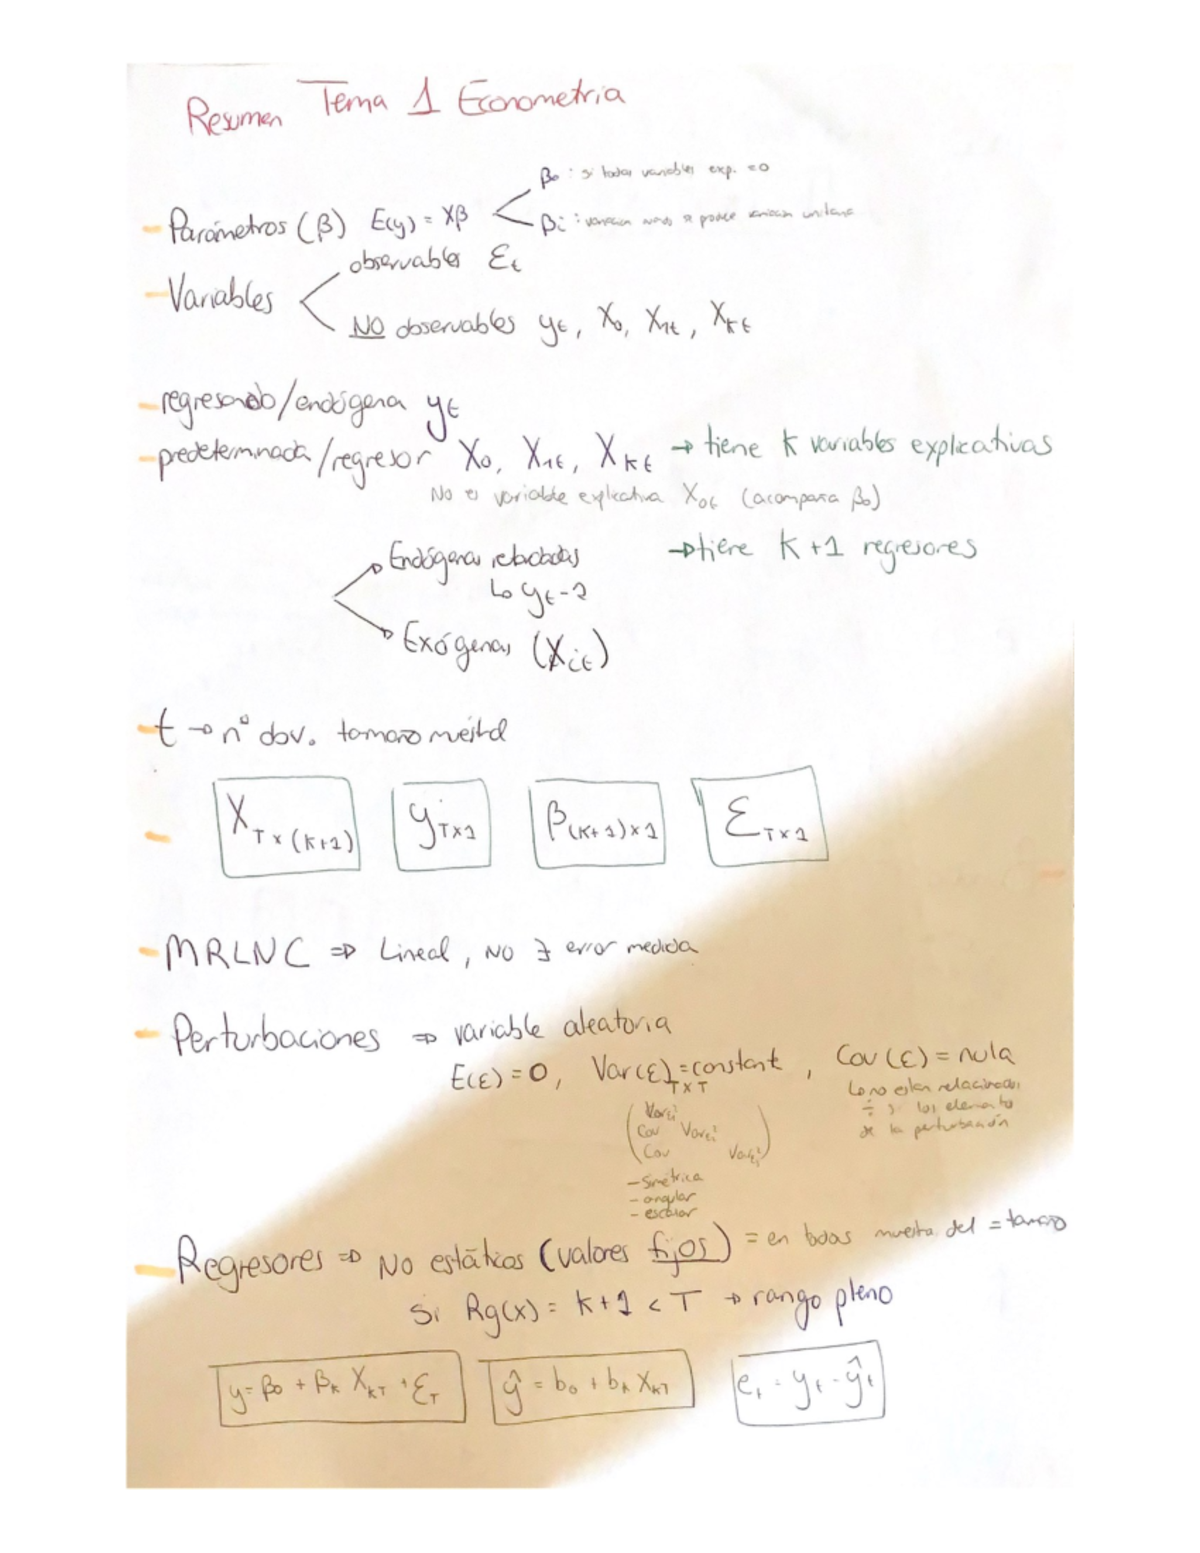 Resumen Tema 1 Econometria
β₀ : si todas variables exp. = 0
- Parámetros (β) E(y) = Xβ
βi : variacion cuando se produce variacion unitaria
observables Ɛt
- Variables
NO observables yt, X₀, X1t, Xkt
- regresando/endógena yt
- predeterminada/regresor X₀, X1t, Xkt → tiene K variables explicativas
No es variable explicativa X0t (acompaña β₀)
Endógenas retardadas → tiene K+1 regresores
↳ yt-1
Exógenas (Xit)
- t → nº obv. tamaño muestral
X T x (K+1) y T x 1 β (K+1) x 1 Ɛ T x 1
- MRLNC ⇒ Lineal, NO ∃ error medida
- Perturbaciones ⇒ variable aleatoria
E(Ɛ) = 0, Var(Ɛ) = constant, Cov(Ɛ) = nula
T x T
↳ no estan relacionados
÷ sí los elementos
de la perturbación
Var
Cov Var
Cov Var
- Simétrica
- angular
- escalar
- Regresores ⇒ No estáticos (valores fijos) = en todas muestra del = tamaño
Si Rg(x) = K+1 < T → rango pleno
y = β₀ + βk XkT + ƐT ŷ = b₀ + bk XkT et = yt - ŷt